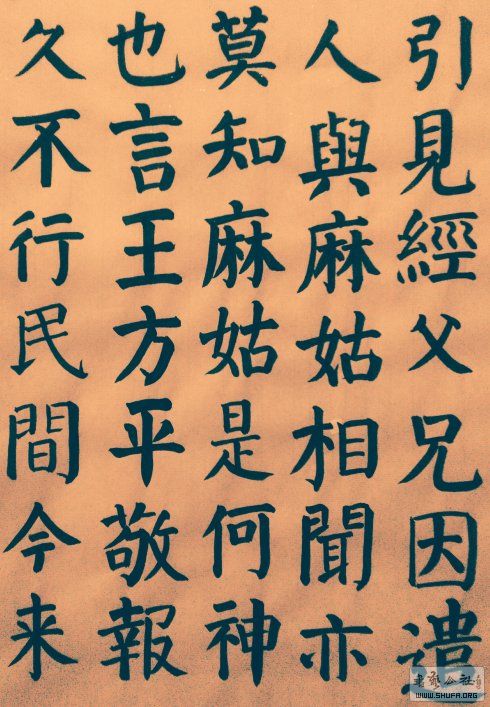 引見經父兄因遣
人與麻姑相聞亦
莫知麻姑是何神
也言王方平敬報
久不行民間今来
WWW.SHUFA.ORG